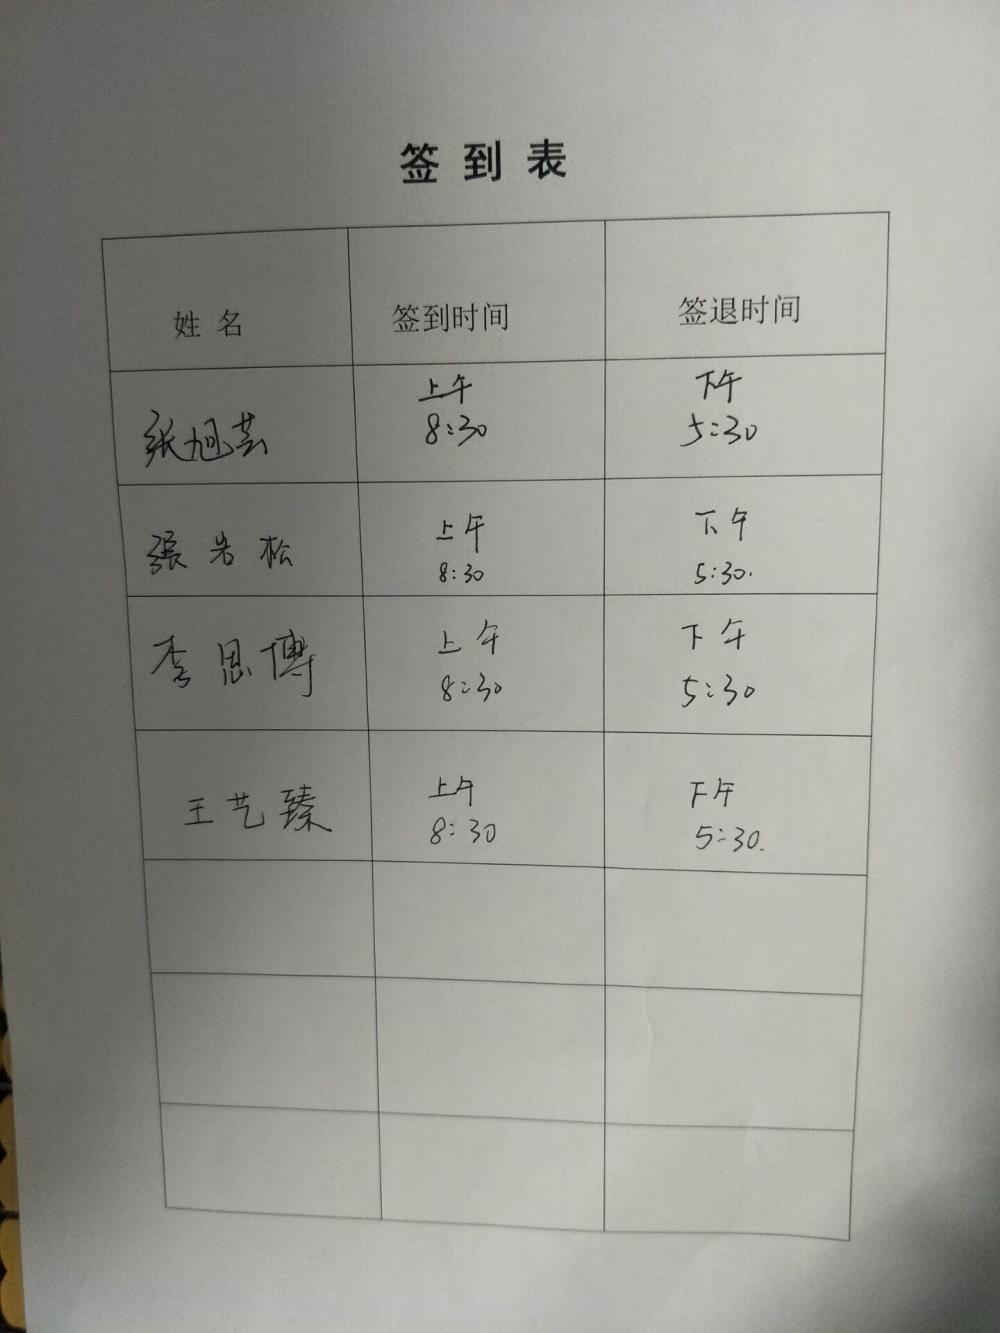 签到表
姓名 签到时间 签退时间
张旭芸 上午 8:30 下午 5:30
張岩松 上午 8:30 下午 5:30.
李思博 上午 8:30 下午 5:30
王艺臻 上午 8:30 下午 5:30.